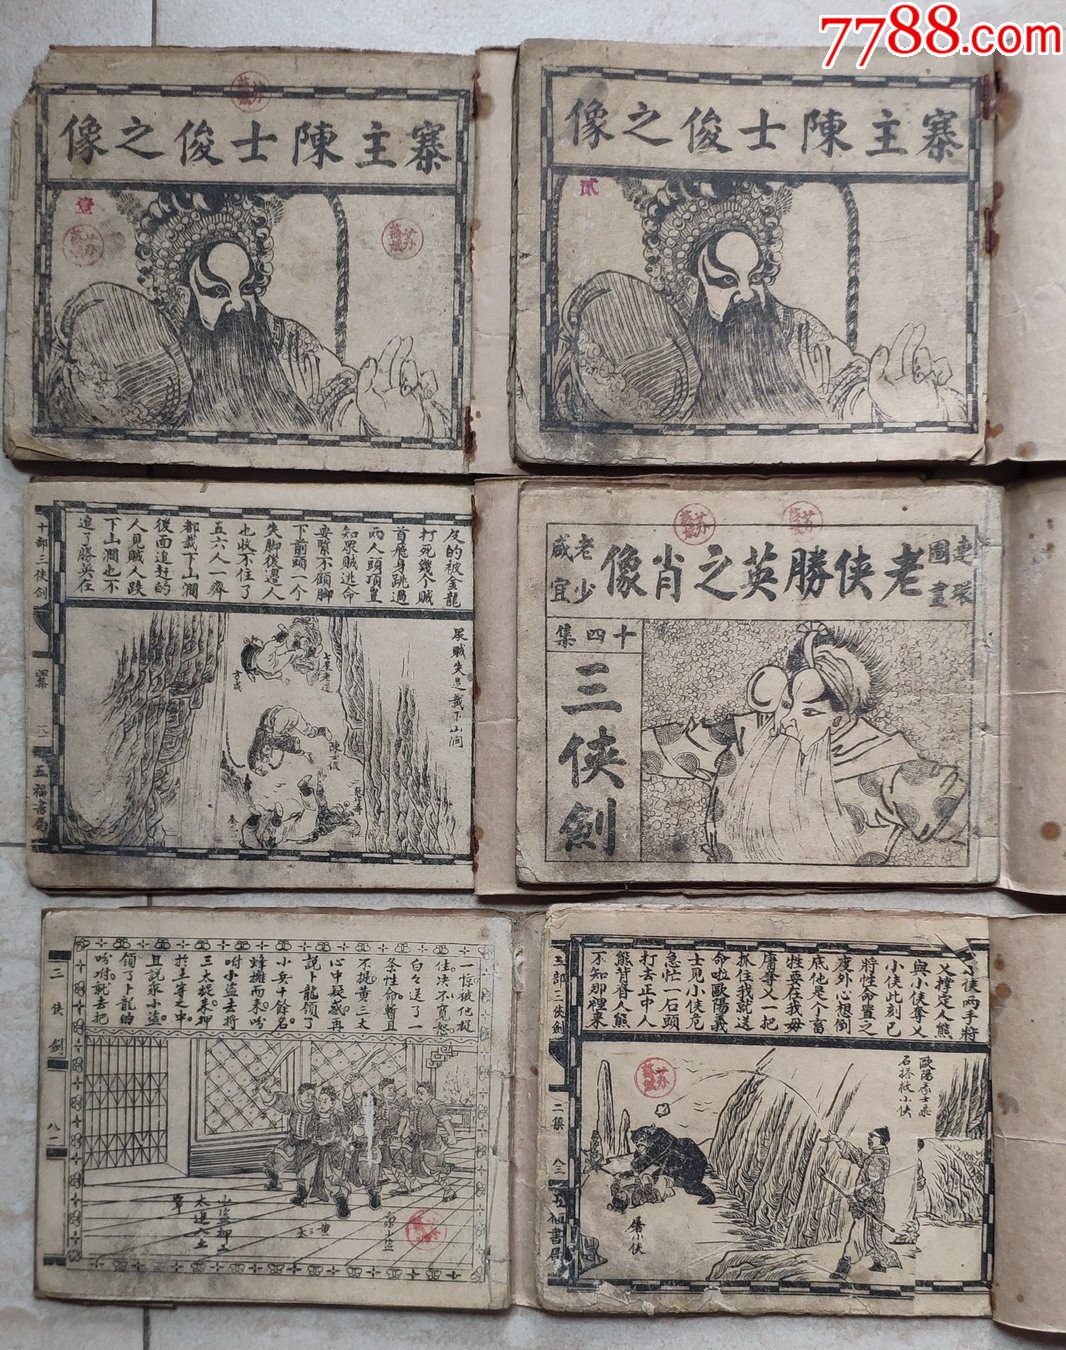 7788.com
寨主陳士俊之像
壹
寨主陳士俊之像
貳
皮的被金龍
打死幾个賊
首飛身跳過
兩人頭頂皇
知眾賊逃命
要緊不顧脚
下前頭一个
失脚後邊人
也收不住了
五六人一齊
都栽下山澗
後面追赶的
人見賊人跌
下山澗也不
追了勝英在
眾賊失足栽下山澗
十部三俠劍
五福書局
連環圖畫
老俠勝英之肖像
老少咸宜
十四集
三俠劍
一惊被他捉
住決不寬恕
白々送了一
条性命暫且
不提黄三太
心中疑惑再
說卜龍領了
小兵十餘名
蜂擁而來吩
咐小盗去將
三太捉來押
於土牢之中
且說眾小盗
領了卜龍的
吩咐就去把
三俠劍
八一
山盗押三
太進入土
牢
黄三
太
小俠兩手將
又撑定人熊
與小俠奪乂
小俠此刻已
將性命置之
度外心想倒
底他是个畜
牲要在我毋
庸奪乂一把
抓住我就送
命啦歐陽義
士見小俠危
急忙一石頭
打去正中人
熊背脊人熊
不知那裡來
歐陽義士飛
石搭救小俠
屠小俠
五部三俠劍
二集
八三
五福書局